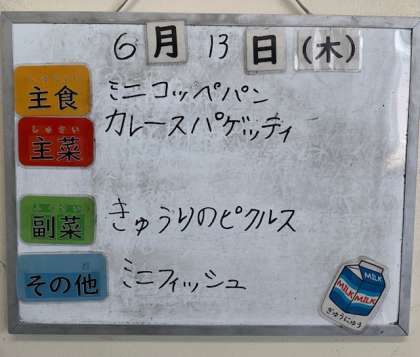 6月13日(木)
しゅしょく
主食 ミニコッペパン
しゅさい
主菜 カレースパゲッティ
副菜 きゅうりのピクルス
その他 ミニフィッシュ
MILK
MILK
MILK
ぎゅうにゅう